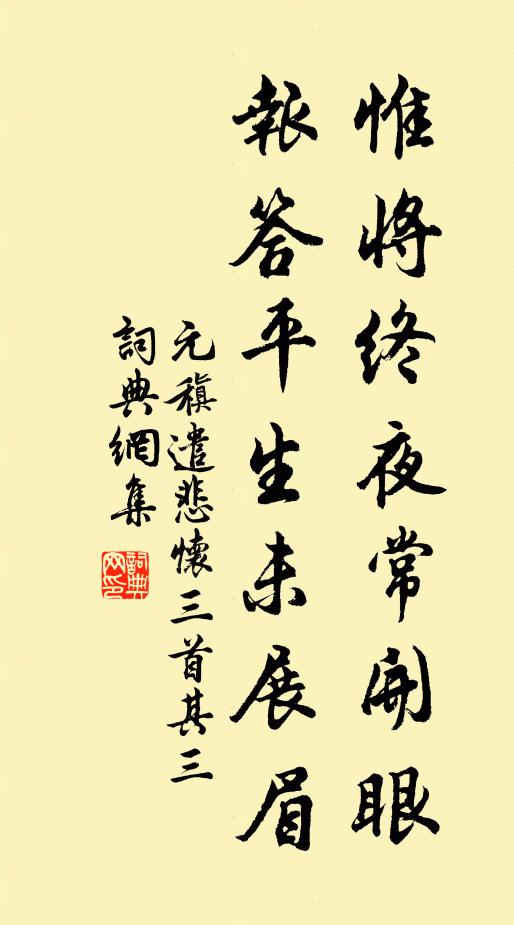 惟將終夜常開眼
報答平生未展眉
元稹遣悲懷三首其三
詞典網集
詞典网印